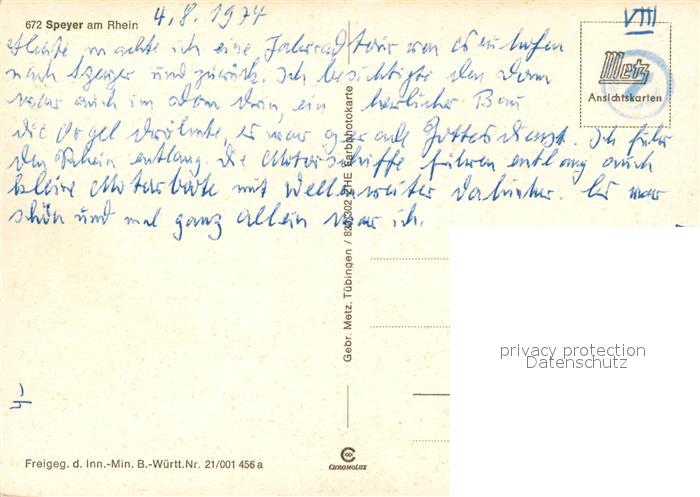 672 Speyer am Rhein
4.8.1974
VIII
Heute machte ich eine Fahrradtour von
nach Speyer und zurück. Ich besichtigte den Dom
war auch im Dom drin, ein herlicher Bau
die Orgel dröhnte, es war gerade Gottesdienst. Ich fuhr
den Rhein entlang. Die Motorschiffe fuhren entlang auch
kleine Motorbote mit dahinter. Es war
schön und mal ganz allein war ich.
Metz
Ansichtskarten
Gebr. Metz, Tübingen / THE Farbphotokarte
privacy protection
Datenschutz
Freigeg. d. Inn.-Min. B.-Württ.Nr. 21/001 456 a
CHROMOLUX